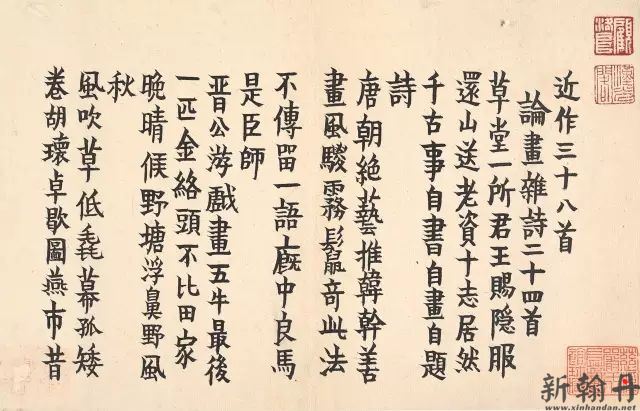 近作三十八首
論畫雜詩二十四首
草堂一所君王賜隐服
還山送老資十志居然
千古事自書自畫自題
詩
唐朝絶藝推韓幹善
畫風騣霧鬛奇此法
不傳留一語厩中良馬
是臣師
晋公游戲畫五牛最後
一匹金絡頭不比田家
晚晴候野塘浮鼻野風
秋
風吹草低毳幕孤矮
卷胡瓌卓歇圖燕市昔
新翰丹
www.xinhandan.net